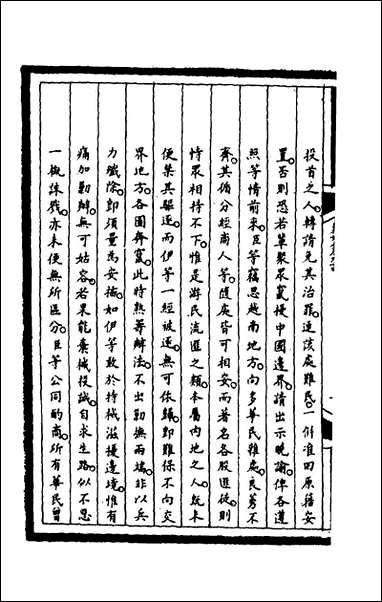 投首之人。轉請免其治罪。連該處難民。一併准回原籍安
置。否則恐若輩聚眾竄擾中國邊界。請出示曉諭。俾各遵
照等情前來。臣等竊思越南地方。向多華民雜處。良莠不
齊。其循分經商人等。隨處皆可相安。而著名各股匪徒。則
恃眾相持不下。惟是游民流匪之類。本屬內地之人。既未
便禁其驅逐。而伊等一經被逐。無可依歸。即難保不向交
界地方。各圖奔竄。此時熟籌辦法。不出勦撫兩端。非以兵
力殲除。即須量為安插。如伊等敢於持械滋擾邊境。惟有
痛加勦辦。無可姑容。若果能棄械投誠。自求生路。似不忍
一概誅戮。亦未便無所區分。臣等公同酌商。所有華民曾